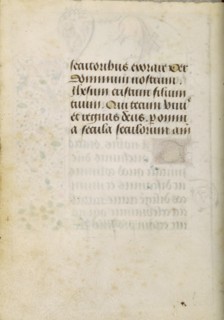 peccatoribus exorare Per
dominum nostrum.
Jhesum cristum filium
tuum. Qui tecum viuit
et regnas deus. p omni
a secula seculorum am